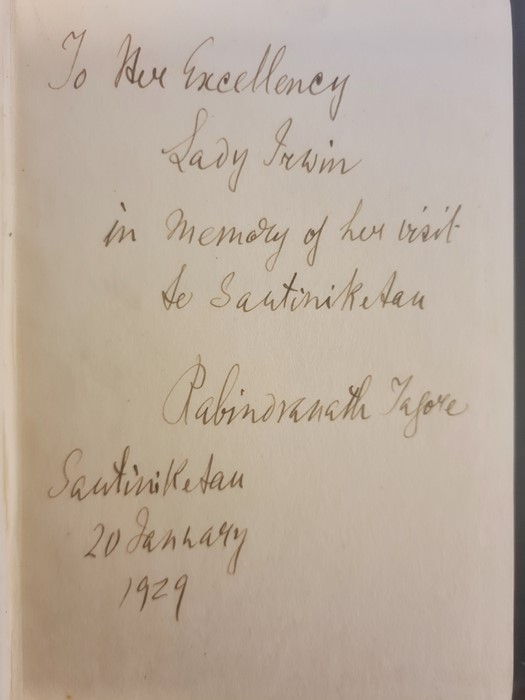 To Her Excellency
Lady Irwin
in memory of her visit
to Santiniketan
Rabindranath Tagore
Santiniketan
20 January
1929